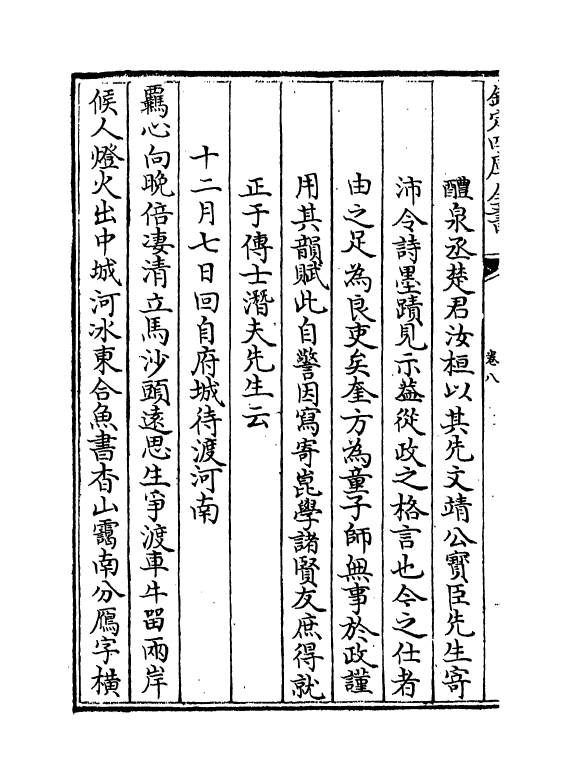 欽定四庫全書
卷八
醴泉丞楚君汝桓以其先文靖公寳臣先生寄
沛令詩墨蹟見示葢從政之格言也今之仕者
由之足為良吏矣奎方為童子師無事於政謹
用其韻賦此自警因寫寄崑學諸賢友庶得就
正于傳士潛夫先生云
十二月七日回自府城待渡河南
羈心向晚倍淒清立馬沙頭遠思生爭渡車牛留兩岸
候人燈火出中城河冰東合魚書杳山靄南分鴈字橫